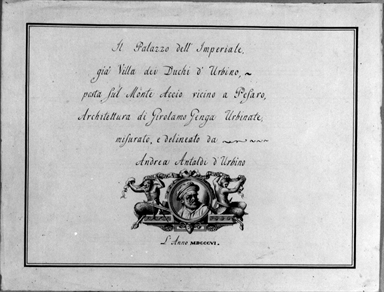 Il Palazzo dell' Imperiale,
già Villa dei Duchi d' Urbino, ~
posta sul Monte Accio vicino a Pesaro,
Architettura di Girolamo Genga Urbinate;
misurato, e delineato da ~~~~
Andrea Antaldi d'Urbino
L'Anno MDCCCVI.